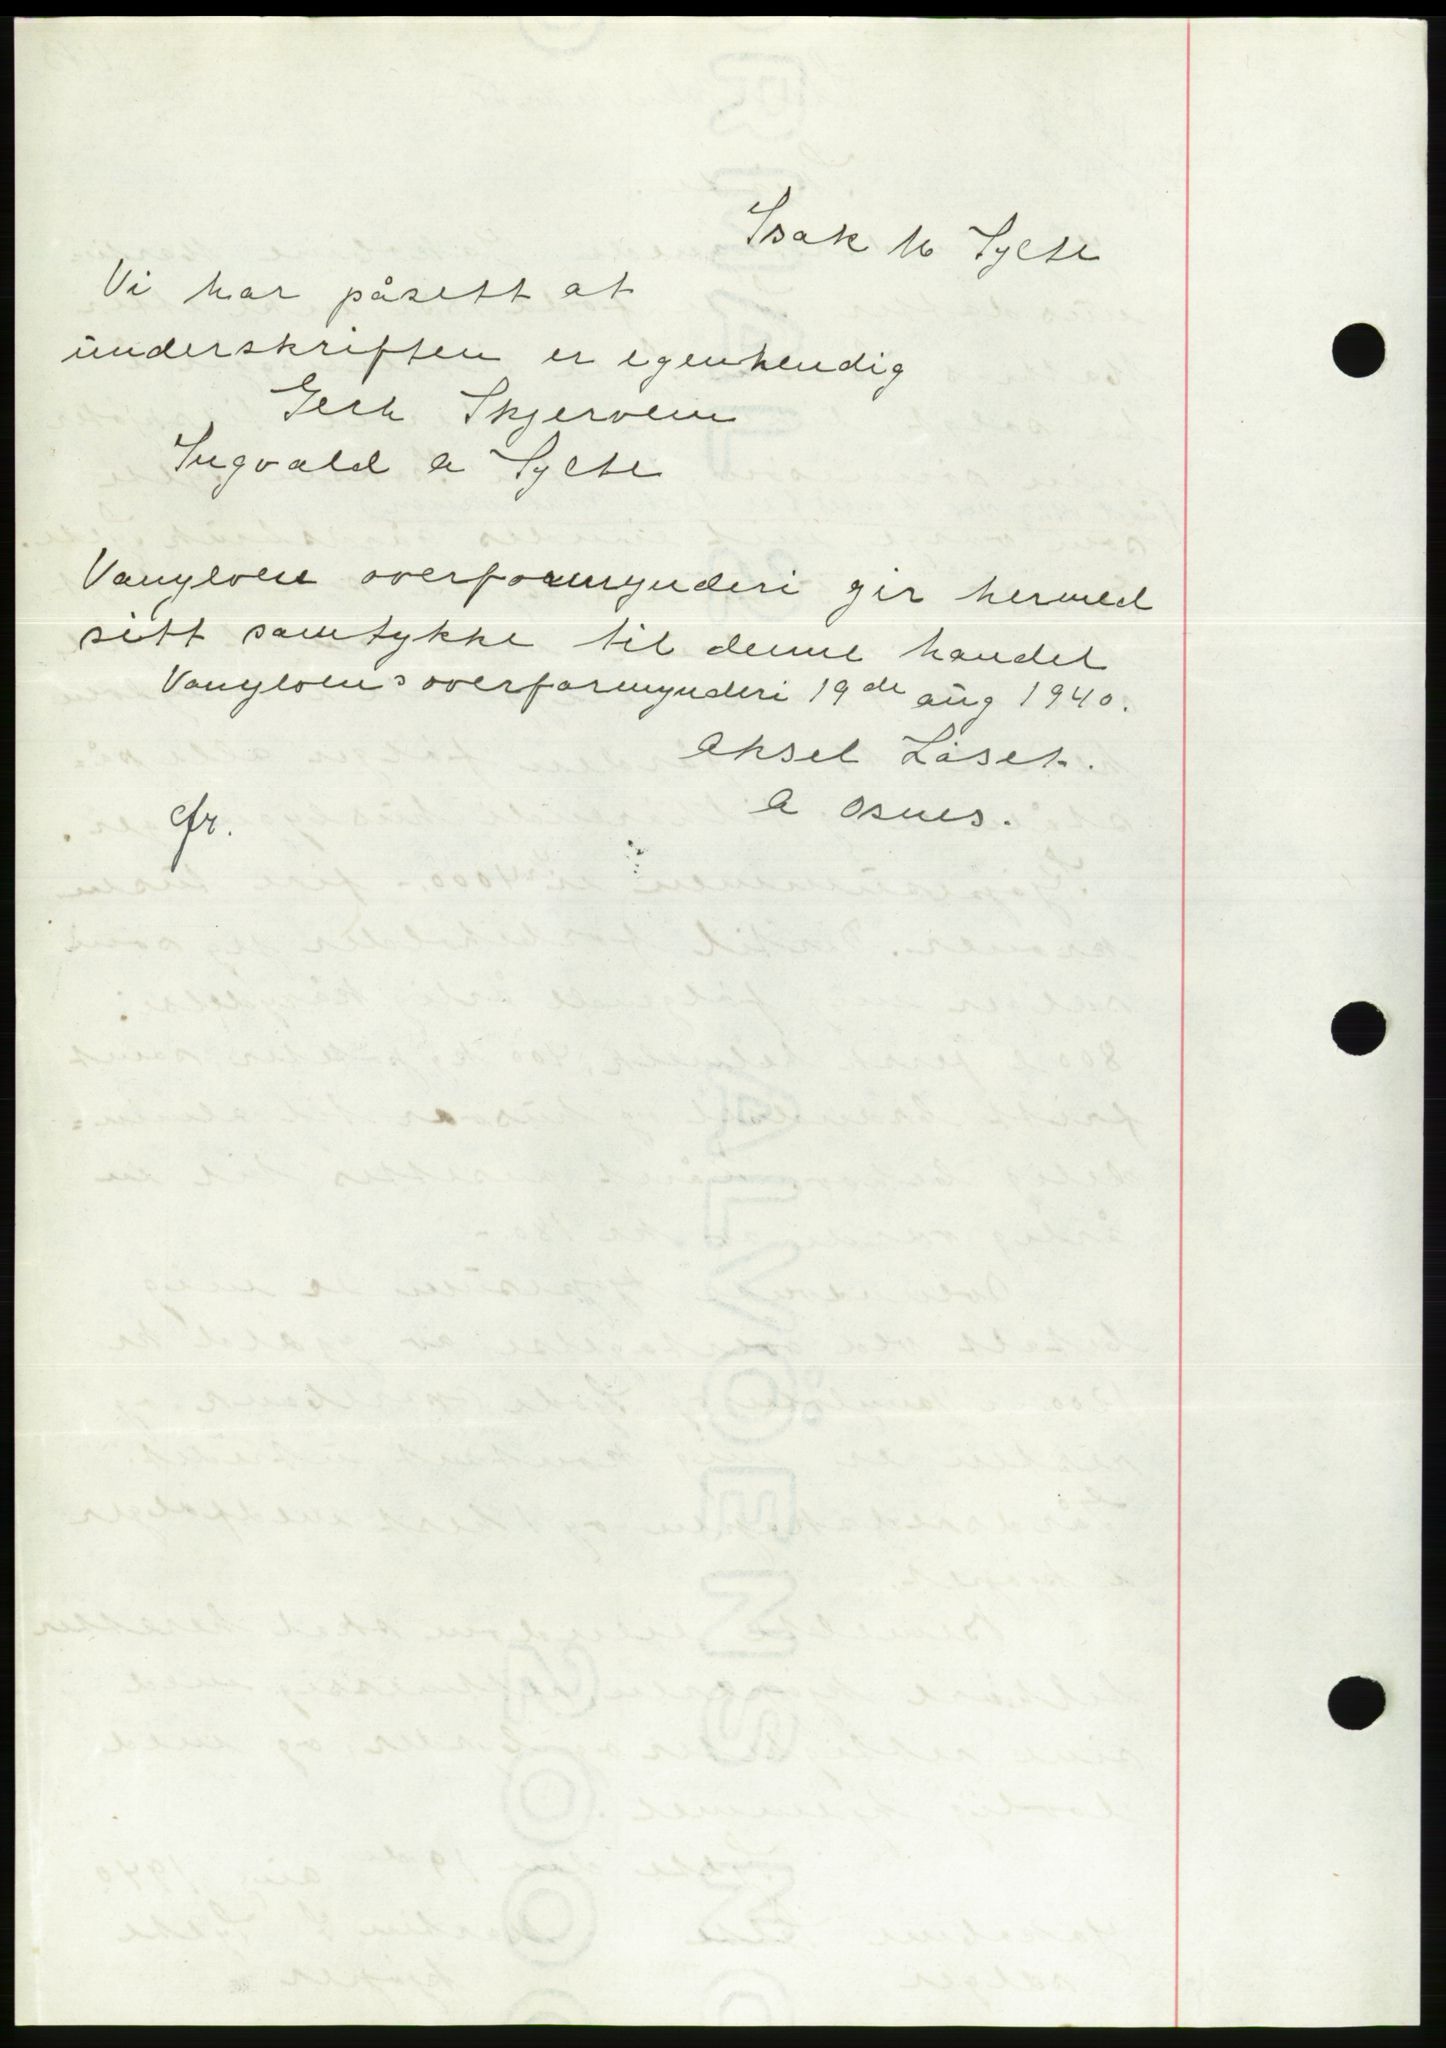 Isak M Sylte
Vi har påsett at
underskriften er egenhendig
Gerh Skjervem
Ingvald A Sylte
Vanylven overformynderi gir hermed
sitt samtykke til denne handel
Vanylvens overformynderi 19de aug 1940.
Aksel Låset.
A Osnes.
cfr.